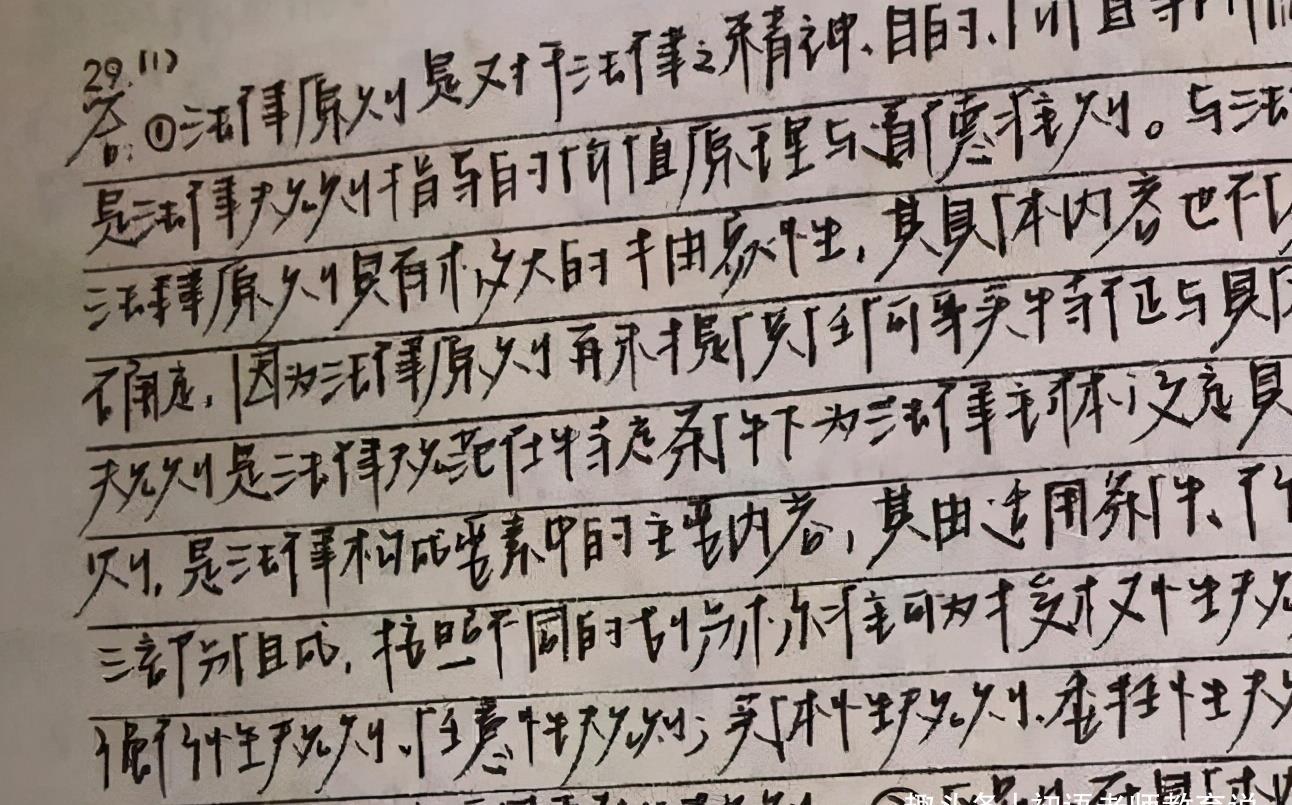 29.(1)
答:①法律原则是对于法律之精神、目的、价值等
是法律规则指导的价值原理与道德准则。与法
法律原则具有极大的抽象性,其具体内容也不
确定,因为法律原则再未提供任何事实特征与具
规则是法律规范在特定条件下为法律主体设定具
则,是法律构成要素中的主要内容,其由适用条件、行
三部分组成,按照不同的划分标准可为授权性规
强行性规则、任意性规则;实体性规则、委任性规
趣头条|初语老师教育说